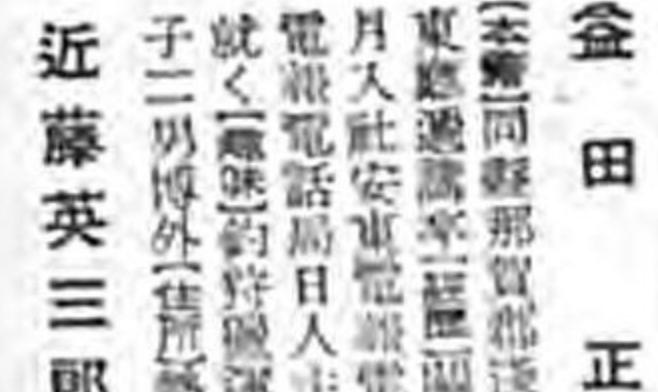 益田正
【本籍】同縣那賀郡
東遞講卒【經歷】
月入社安東電報電
電報電話局日人
就く【趣味】釣狩獵
子二男博外【住所】
近藤英三郎